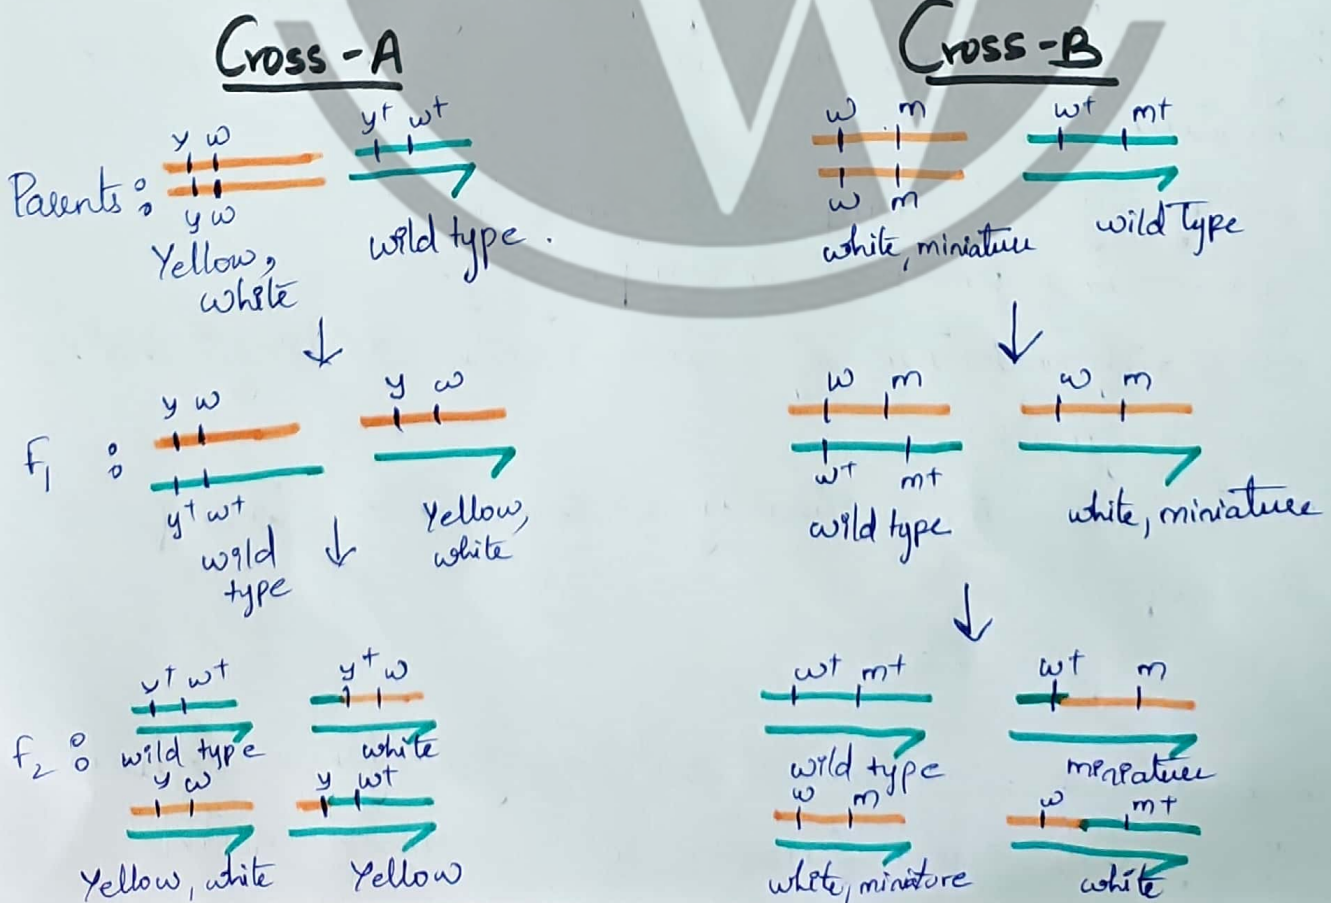 Cross-A
y w
y+ w+
Parents:
y w
Yellow,
white
wild type.
y w
y w
F1 :
y+ w+
wild
type
Yellow,
white
y+ w+
y+ w
F2 :
wild type
white
y w
y w+
Yellow, white
Yellow
Cross-B
w m
w+ m+
w m
white, miniature
wild Type
w m
w m
w+ m+
wild type
white, miniature
w+ m+
w+ m
wild type
miniature
w m
w m+
white, miniature
white